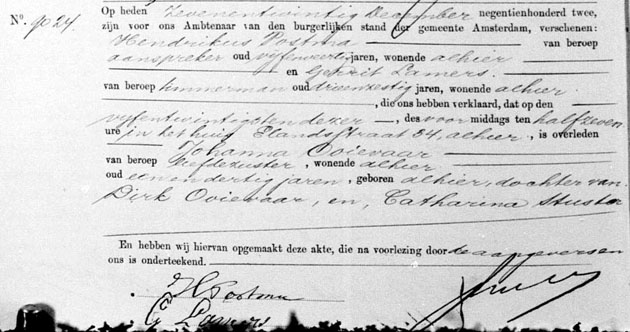 No. 9024.
Op heden Zevenentwintig December negentienhonderd twee,
zijn voor ons Ambtenaar van den burgerlijken stand der gemeente Amsterdam, verschenen:
Hendrikus Postma van beroep
aanspreker oud vijfenveertig jaren, wonende alhier
en Gerrit Lamers.
van beroep timmerman oud drieenzestig jaren, wonende alhier
, die ons hebben verklaard, dat op den
vijfentwintigsten dezer, des voor middags ten half zeven
ure in het huis Elandsstraat 34, alhier, is overleden
Johanna Ooievaar
van beroep liefdezuster, wonende alhier
oud een en dertig jaren, geboren alhier, dochter van
Dirk Ooievaar, en, Catharina
En hebben wij hiervan opgemaakt deze akte, die na voorlezing door de aangeversen
ons is onderteekend.
H Postma
G Lamers